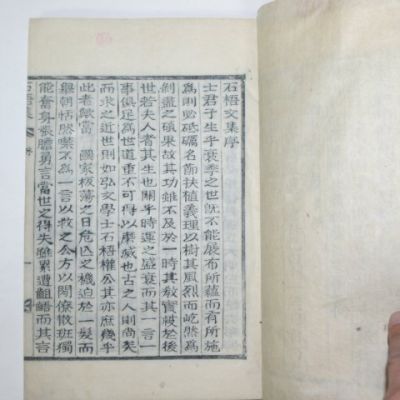 石梧文集序
士君子生乎衰季之世旣不能展布所蘊而有所施
爲則必砥礪名節扶植義理以樹其風烈而屹然爲
剝盡之碩果故其功雖不及於一時其敎實綏於後
世若夫人者其生也關乎時運之盛衰而其一言一
事俱足爲世道重不可得以磨滅也古之人則尙矣
而求之近世則如弘文學士石梧權公其亦庶幾乎
此者歟當 國家板蕩之日危亡之機迫於一髮而
擧朝恬嘿噤不爲一言以救之公方以閒僚散班獨
能奮身張膽勇言當世之得失雖累遭齟齬而其言
石梧集 序 一